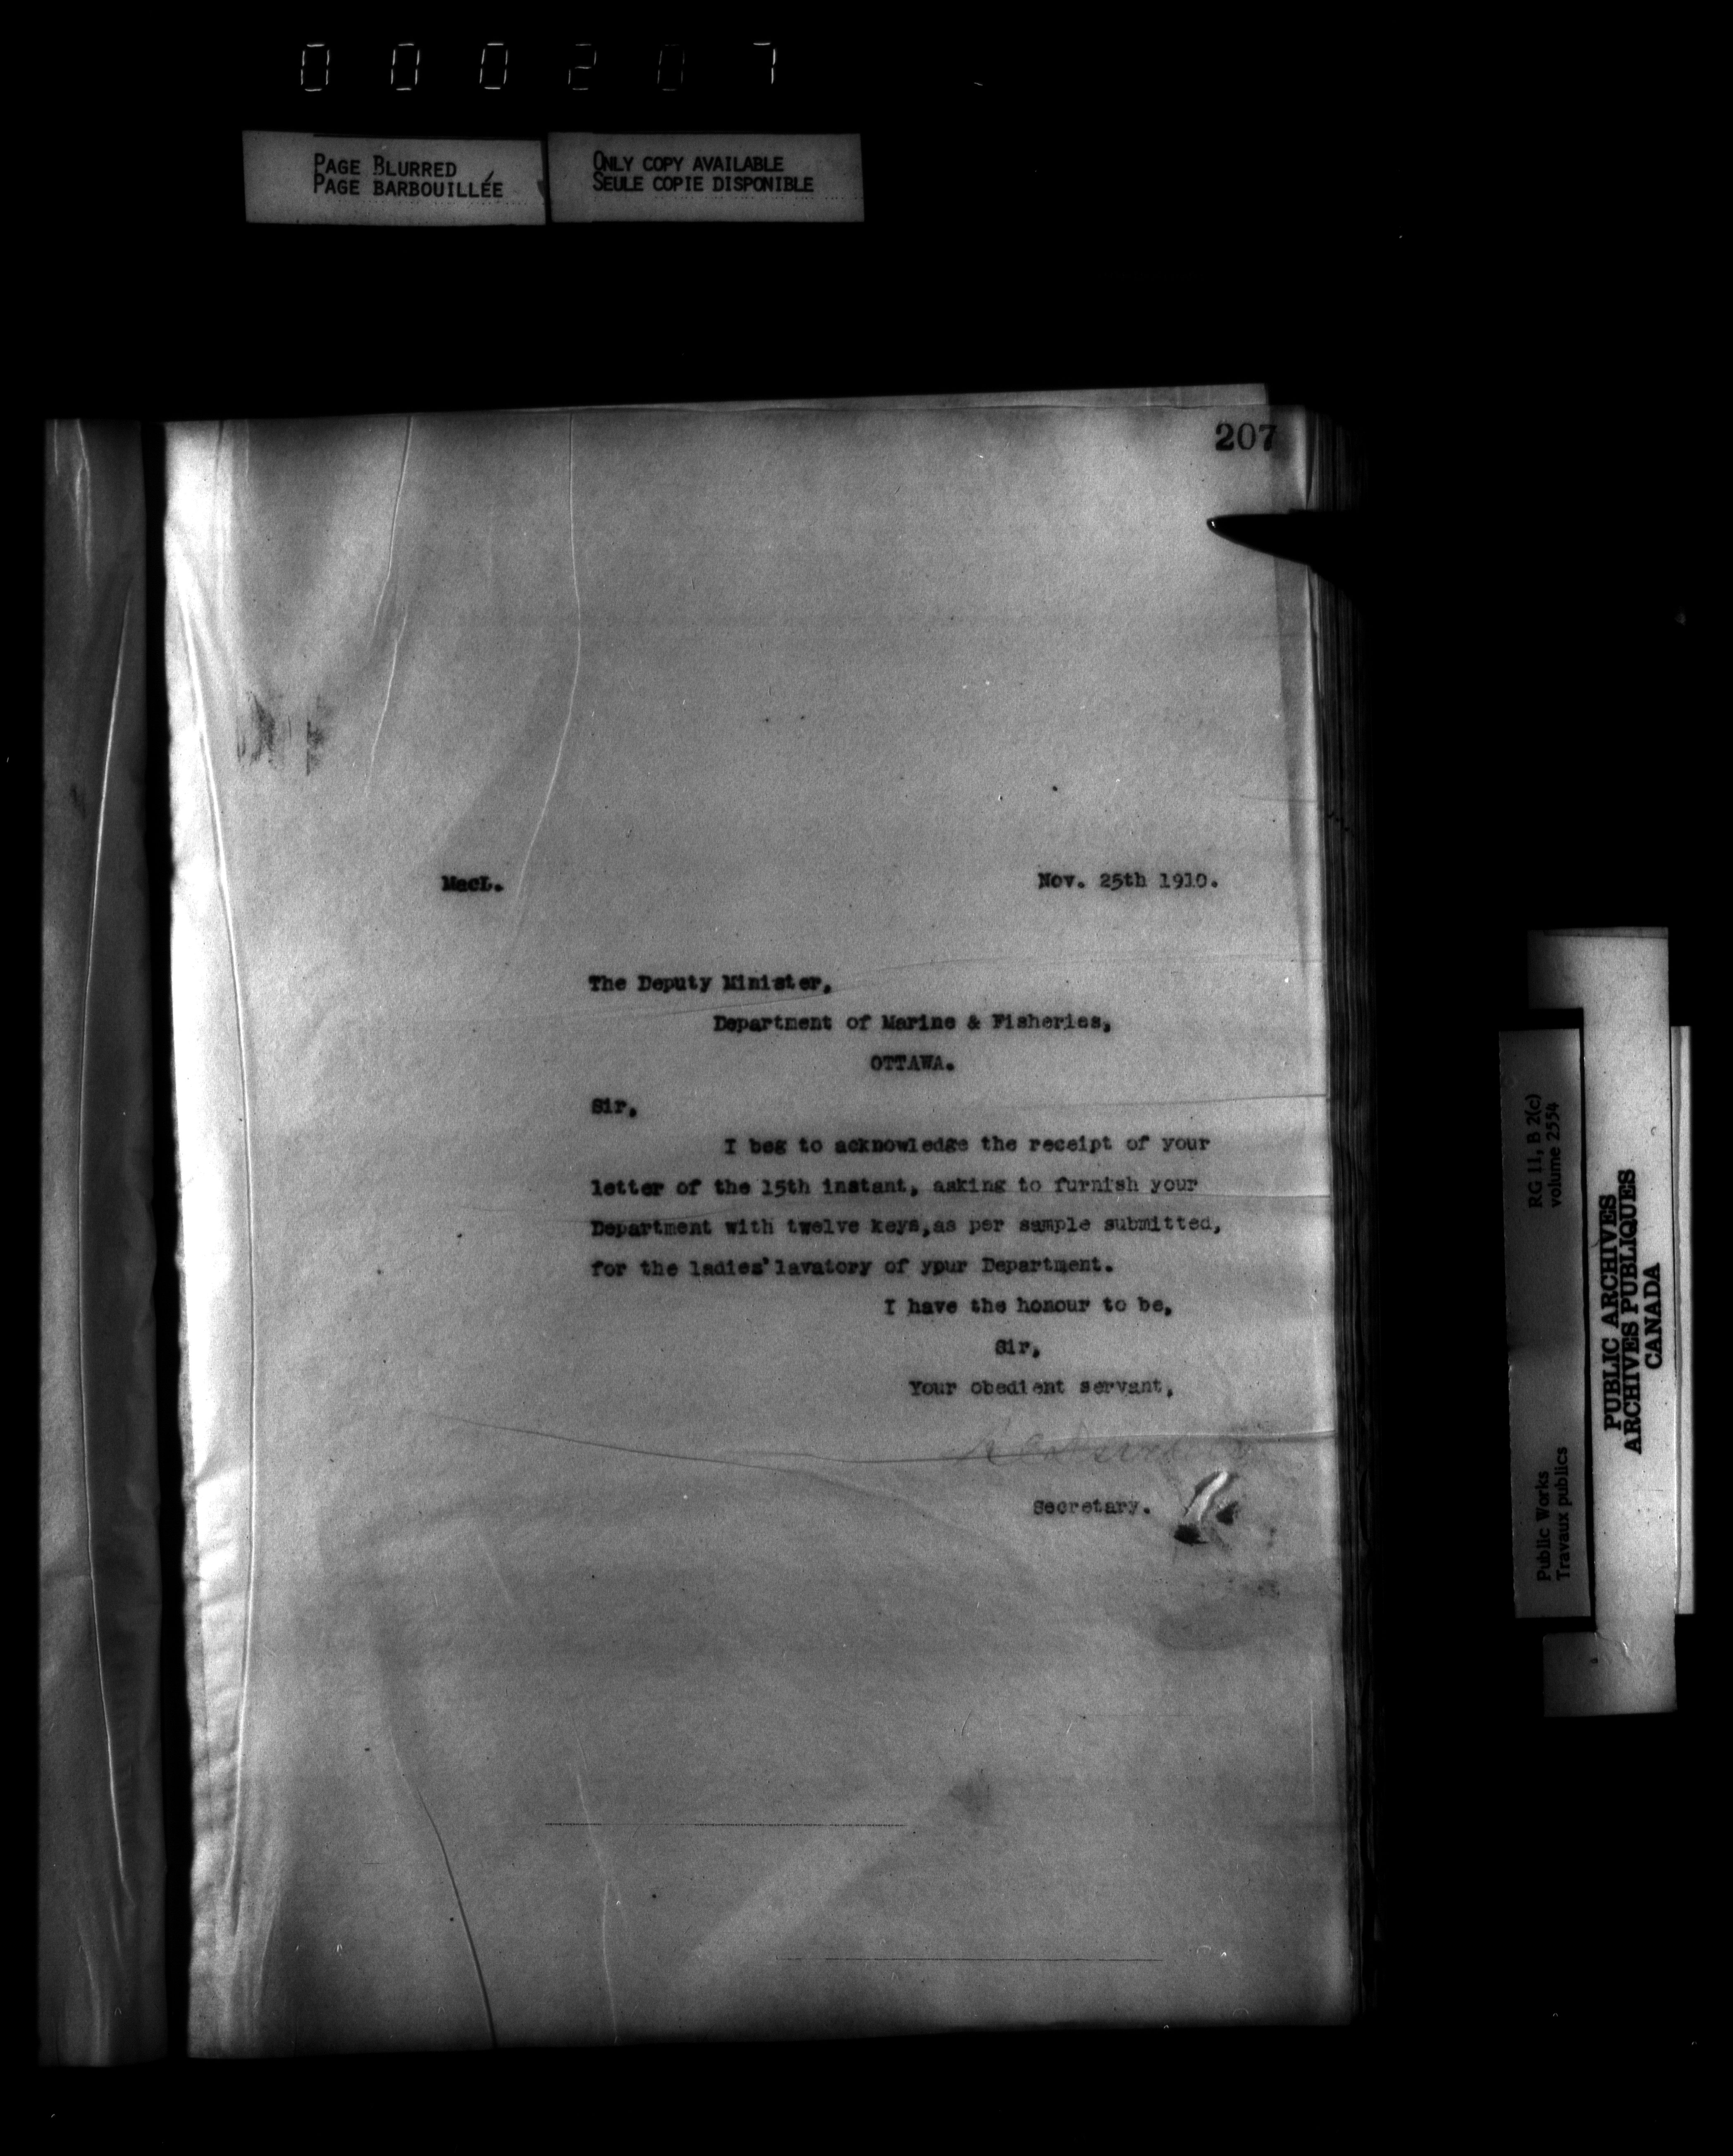 000207
PAGE BLURRED
PAGE BARBOUILLÉE
ONLY COPY AVAILABLE
SEULE COPIE DISPONIBLE
207
MacL.
Nov. 25th 1910.
The Deputy Minister,
Department of Marine & Fisheries,
OTTAWA.
Sir,
I beg to acknowledge the receipt of your
letter of the 15th instant, asking to furnish your
Department with twelve keys,as per sample submitted,
for the ladies'lavatory of your Department.
I have the honour to be,
Sir,
Your obedient servant,
Secretary.
RG 11, B 2(c)
volume 2554
Public Works
Travaux publics
PUBLIC ARCHIVES
ARCHIVES PUBLIQUES
CANADA